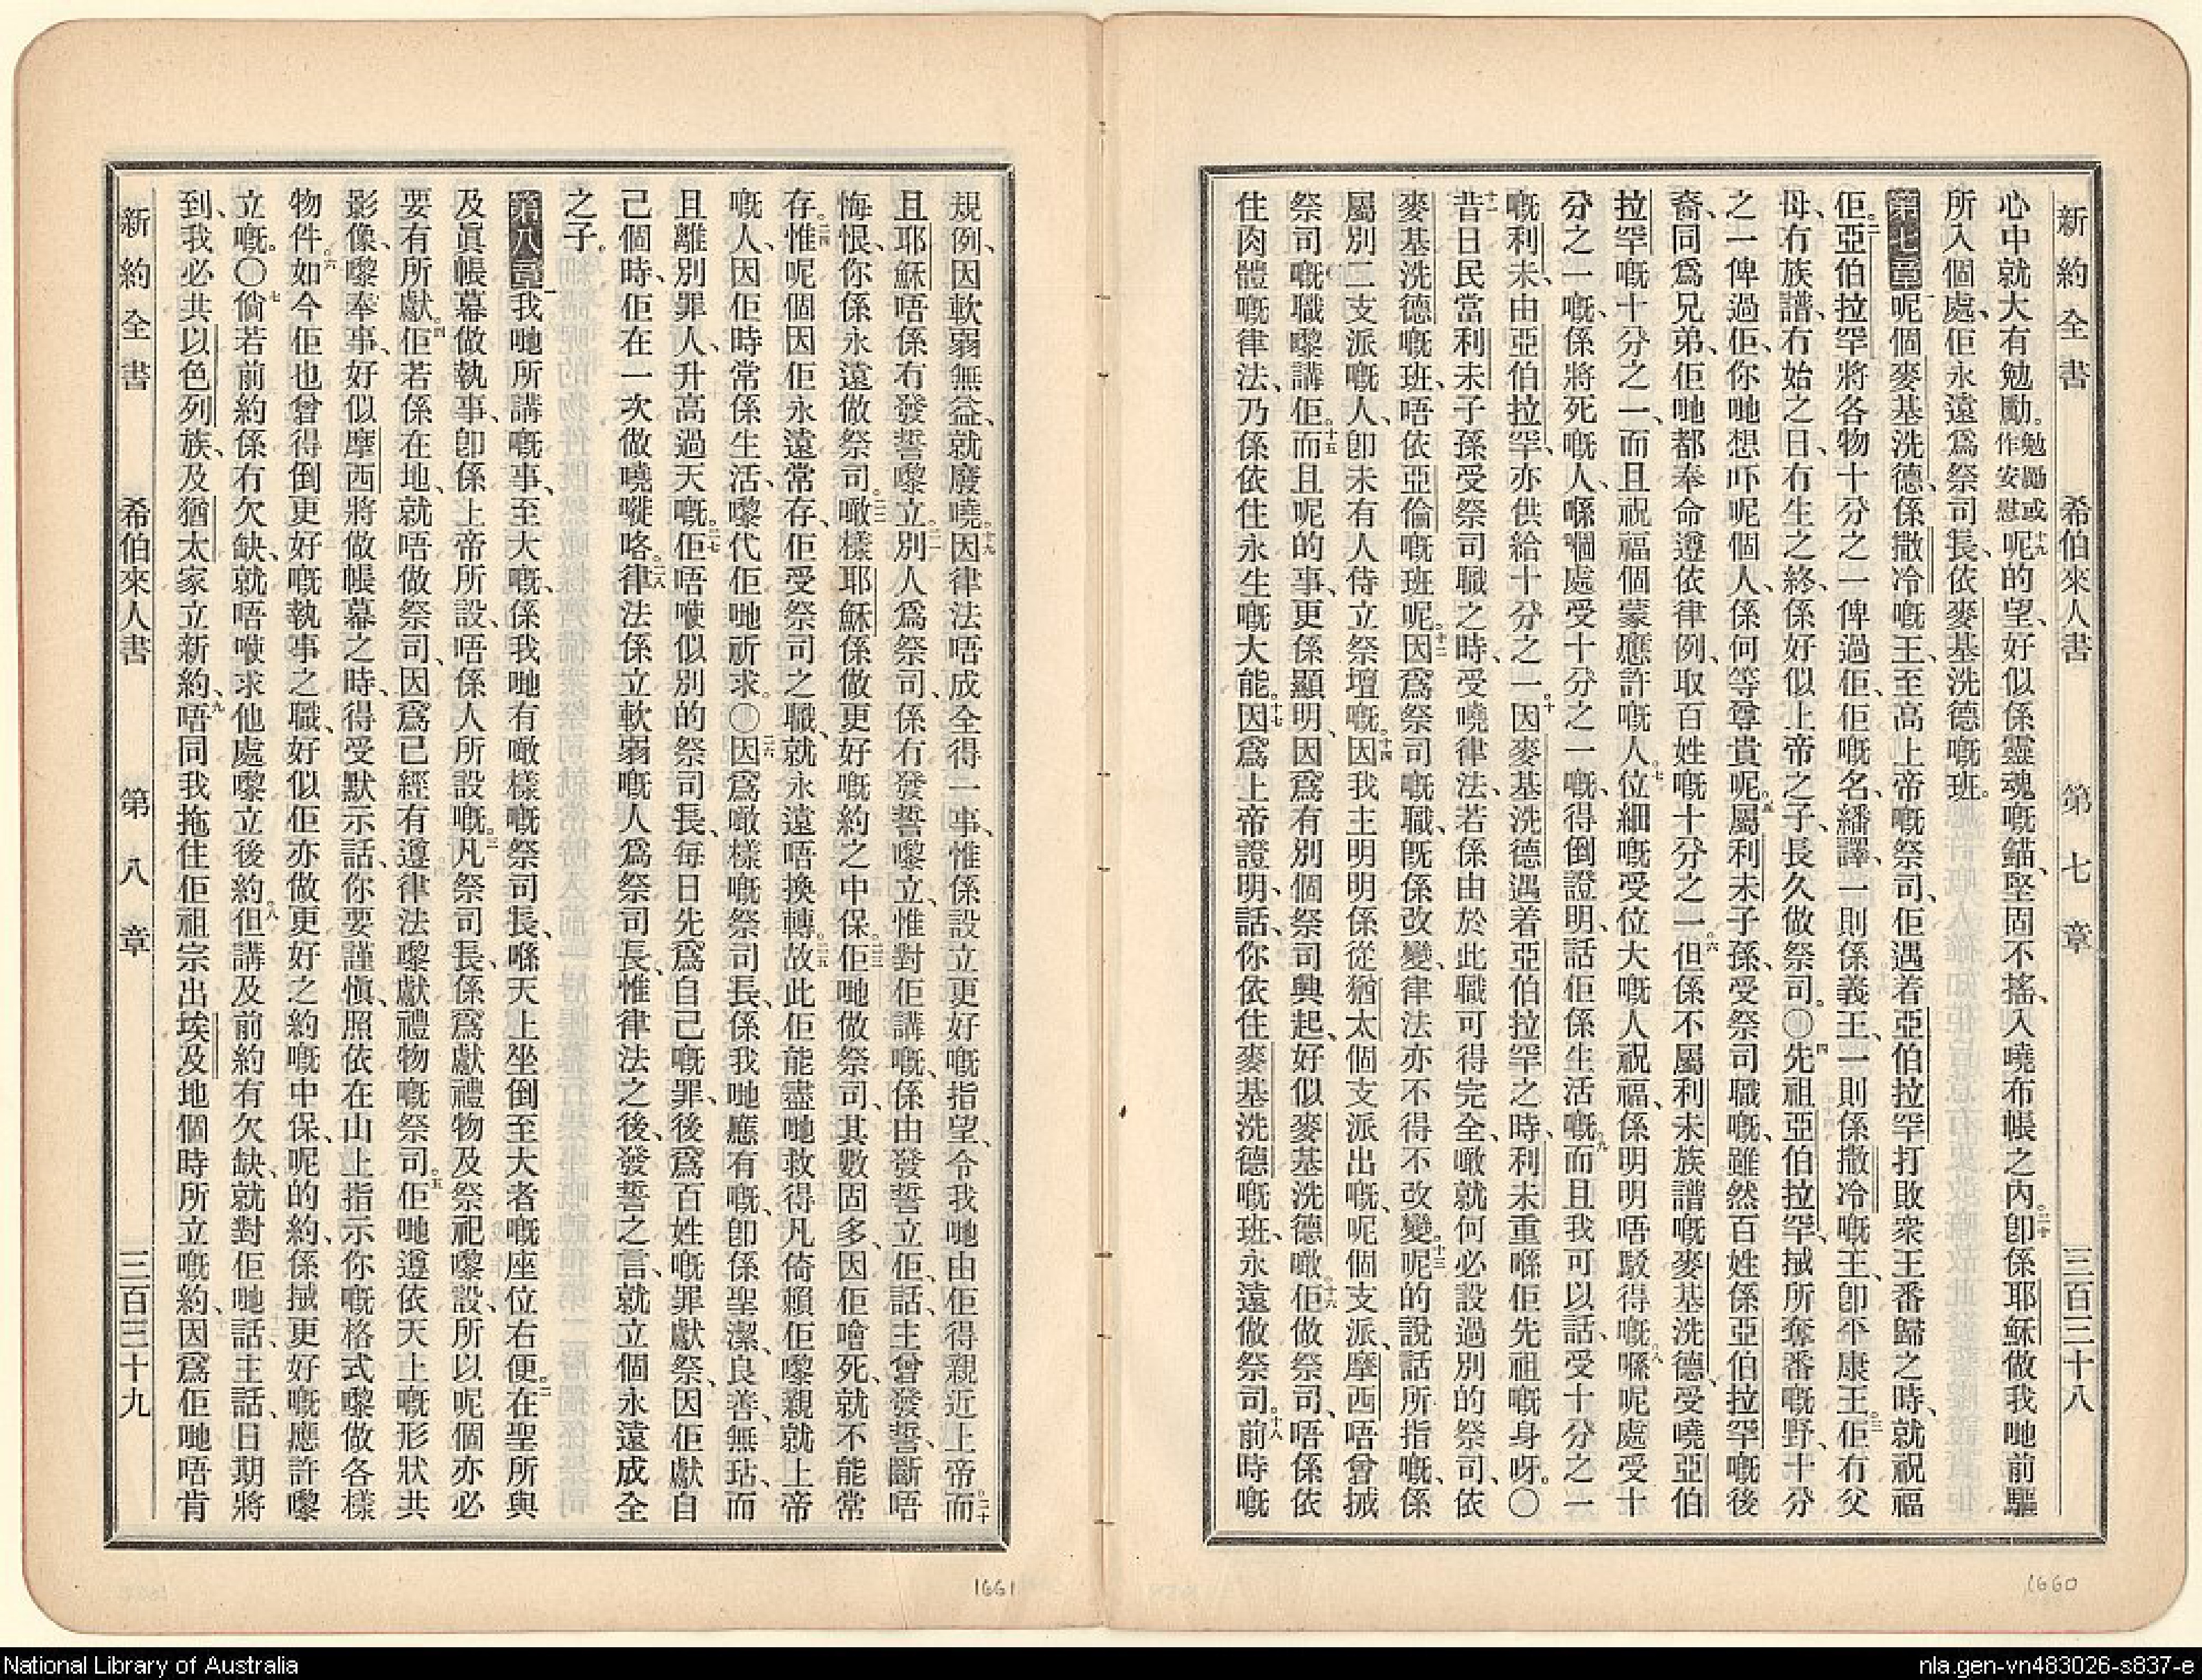 新約全書　希伯來人書　第七章　三百三十八
心中就大有勉勵。勉勵或作安慰十九呢的望、好似係靈魂嘅錨、堅固不搖、入曉布帳之內。二十卽係耶穌做我哋前驅
所入個處、佢永遠爲祭司長、依麥基洗德嘅班。
第七章一呢個麥基洗德、係撒冷嘅王、至高上帝嘅祭司、佢遇着亞伯拉罕打敗衆王番歸之時、就祝福
佢。二亞伯拉罕將各物十分之一俾過佢、佢嘅名、繙譯、一則係義王、一則係撒冷嘅王、卽平康王。三佢冇父
母、冇族譜、冇始之日、冇生之終、係好似上帝之子、長久做祭司。〇四先祖亞伯拉罕、搣所奪番嘅野、十分
之一俾過佢、你哋想吓呢個人、係何等尊貴呢。五屬利未子孫、受祭司職嘅、雖然百姓係亞伯拉罕嘅後
裔、同爲兄弟、佢哋都奉命遵依律例、取百姓嘅十分之一。六但係不屬利未族譜嘅麥基洗德、受曉亞伯
拉罕嘅十分之一、而且祝福個蒙應許嘅人。七位細嘅受位大嘅人祝福、係明明唔駁得嘅。八喺呢處受十
分之一嘅、係將死嘅人、喺嗰處受十分之一嘅、得倒證明、話佢係生活嘅。九而且我可以話、受十分之一
嘅利未、由亞伯拉罕、亦供給十分之一。十因麥基洗德遇着亞伯拉罕之時、利未重喺佢先祖嘅身呀。〇
十一昔日民當利未子孫受祭司職之時、受曉律法、若係由於此職可得完全、噉就何必設過別的祭司、依
麥基洗德嘅班、唔依亞倫嘅班呢。十二因爲祭司嘅職、旣係改變、律法亦不得不改變。十三呢的說話所指嘅、係
屬別一支派嘅人、卽未有人侍立祭壇嘅。十四因我主明明係從猶太個支派出嘅、呢個支派、摩西唔曾搣
祭司嘅職嚟講佢。十五而且呢的事、更係顯明、因爲有別個祭司興起、好似麥基洗德噉。十六佢做祭司、唔係依
住肉體嘅律法、乃係依住永生嘅大能。十七因爲上帝證明、話、你依住麥基洗德嘅班、永遠做祭司。十八前時嘅
規例、因軟弱無益、就廢曉。十九因律法唔成全得一事、惟係設立更好嘅指望、令我哋由佢得親近上帝。二十而
且耶穌唔係冇發誓嚟立。二一別人爲祭司、係冇發誓嚟立、惟對佢講嘅、係由發誓立佢、話、主曾發誓、斷唔
悔恨、你係永遠做祭司。二二噉樣耶穌係做更好嘅約之中保。二三佢哋做祭司、其數固多、因佢噲死、就不能常
存。二四惟呢個因佢永遠常存、佢受祭司之職、就永遠唔換轉。二五故此佢能盡哋救得凡倚賴佢嚟親就上帝
嘅人、因佢時常係生活、嚟代佢哋祈求。〇二六因爲噉樣嘅祭司長、係我哋應有嘅、卽係聖潔、良善、無玷、而
且離別罪人、升高過天嘅。二七佢唔㗎似別的祭司長、每日先爲自己嘅罪、後爲百姓嘅罪獻祭、因佢獻自
己個時、佢在一次做曉嘥咯。二八律法係立軟弱嘅人爲祭司長、惟律法之後、發誓之言、就立個永遠成全
之子。
第八章一我哋所講嘅事、至大嘅、係我哋有噉樣嘅祭司長、喺天上坐倒至大者嘅座位右便。二在聖所與
及眞帳幕做執事、卽係上帝所設、唔係人所設嘅。三凡祭司長、係爲獻禮物及祭祀嚟設、所以呢個亦必
要有所獻。四佢若係在地、就唔做祭司、因爲已經有遵律法嚟獻禮物嘅祭司。五佢哋遵依天上嘅形狀共
影像、嚟奉事、好似摩西將做帳幕之時、得受默示話、你要謹愼、照依在山上指示你嘅格式嚟做各樣
物件。六如今佢也曾得倒更好嘅執事之職、好似佢亦做更好之約嘅中保、呢的約、係搣更好嘅應許嚟
立嘅。〇七倘若前約係有欠缺、就唔㗎求他處嚟立後約。八但講及前約有欠缺、就對佢哋話、主話、日期將
到、我必共以色列族、及猶太家立新約、九唔同我拖住佢祖宗出埃及地個時所立嘅約、因爲佢哋唔肯
新約全書　希伯來人書　第八章　三百三十九
1661
1660
National Library of Australia
nla.gen-vn483026-s837-e